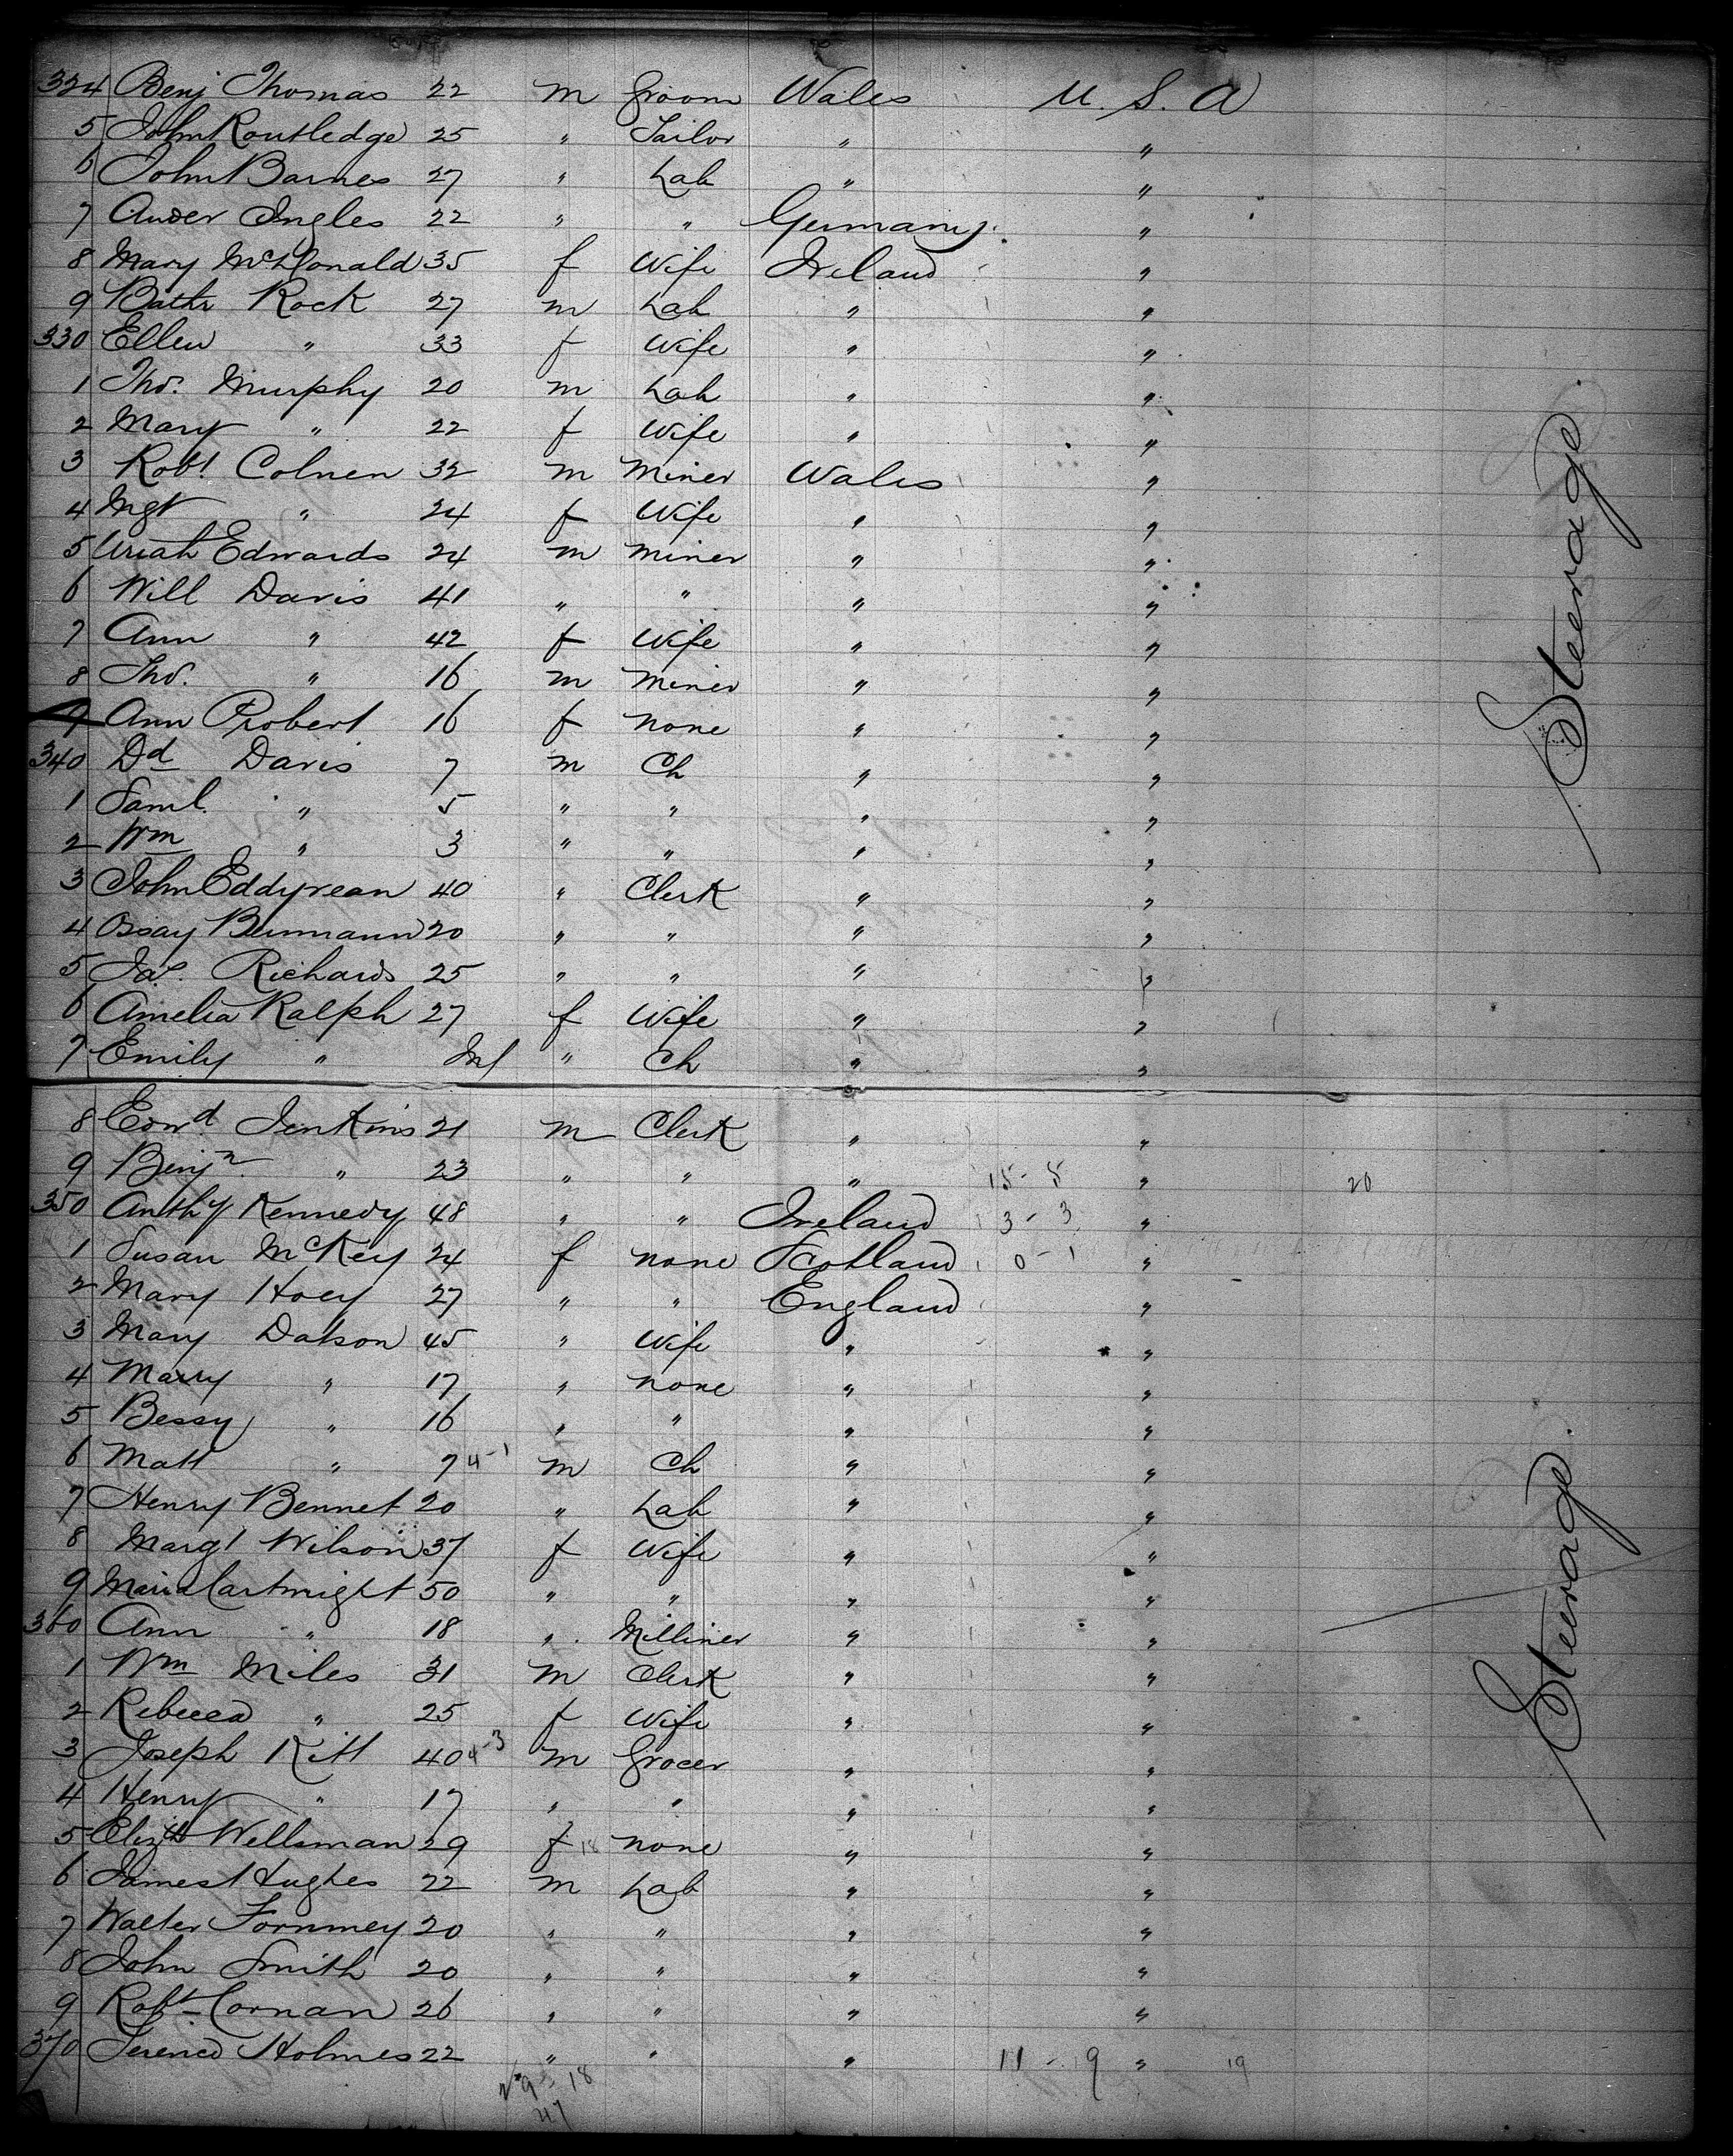 324 Benj Thomas 22 m Groom Wales U. S. A
5 John Routledge 25 " Tailor " "
6 John Barnes 27 " Lab " "
7 Ander Ingles 22 " " Germany "
8 Mary McDonald 35 f Wife Ireland "
9 Rock 27 m Lab " "
330 Ellen " 33 f Wife " "
1 Thos. Murphy 20 m Lab " "
2 Mary " 22 f Wife " "
3 Robt Colnen 32 m Miner Wales "
4 Mgt " 24 f Wife " "
5 Uriah Edwards 24 m miner " "
6 Will Davis 41 " " " "
7 Ann " 42 f Wife " "
8 Thos. " 16 m miner " "
9 Ann Probert 16 f none " "
340 Dd Davis 7 m Ch " "
1 Saml. " 5 " " " "
2 Wm " 3 " " " "
3 John Eddyvean 40 " Clerk " "
4 Bermann 20 " " " "
5 Jas. Richards 25 " " " "
6 Amelia Ralph 27 f Wife " "
7 Emily " Inf " Ch " "
8 Edwd Jenkins 21 m Clerk " "
9 Benjn " 23 " " " 15 - 5 " 20
350 Anthy Kennedy 48 " " Ireland 3 - 3 "
1 Susan McKey 24 f none Scotland 0 - 1 "
2 Mary Hoey 27 " " England "
3 Mary Datson 45 " Wife " "
4 Mary " 17 " none " "
5 Bessy " 16 " " " "
6 Matt " 7 4-1 m Ch " "
7 Henry Bennet 20 " Lab " "
8 Margt Wilson 37 f Wife " "
9 Maria Cartwright 50 " " " "
360 Ann " 18 " Milliner " "
1 Wm Miles 31 m Clerk " "
2 Rebecca " 25 f Wife " "
3 Joseph Kitt 40 4-3 m Grocer " "
4 Henry " 17 " " " "
5 Elizth Wellsman 29 f 18 none " "
6 James Hughes 22 m Lab " "
7 Walter Fornmey 20 " " " "
8 John Smith 20 " " " "
9 Robt Cornan 26 " " " "
370 Terence Holmes 22 " " " 11 - 9 " 19
29 - 18
47
Steerage.
Steerage.